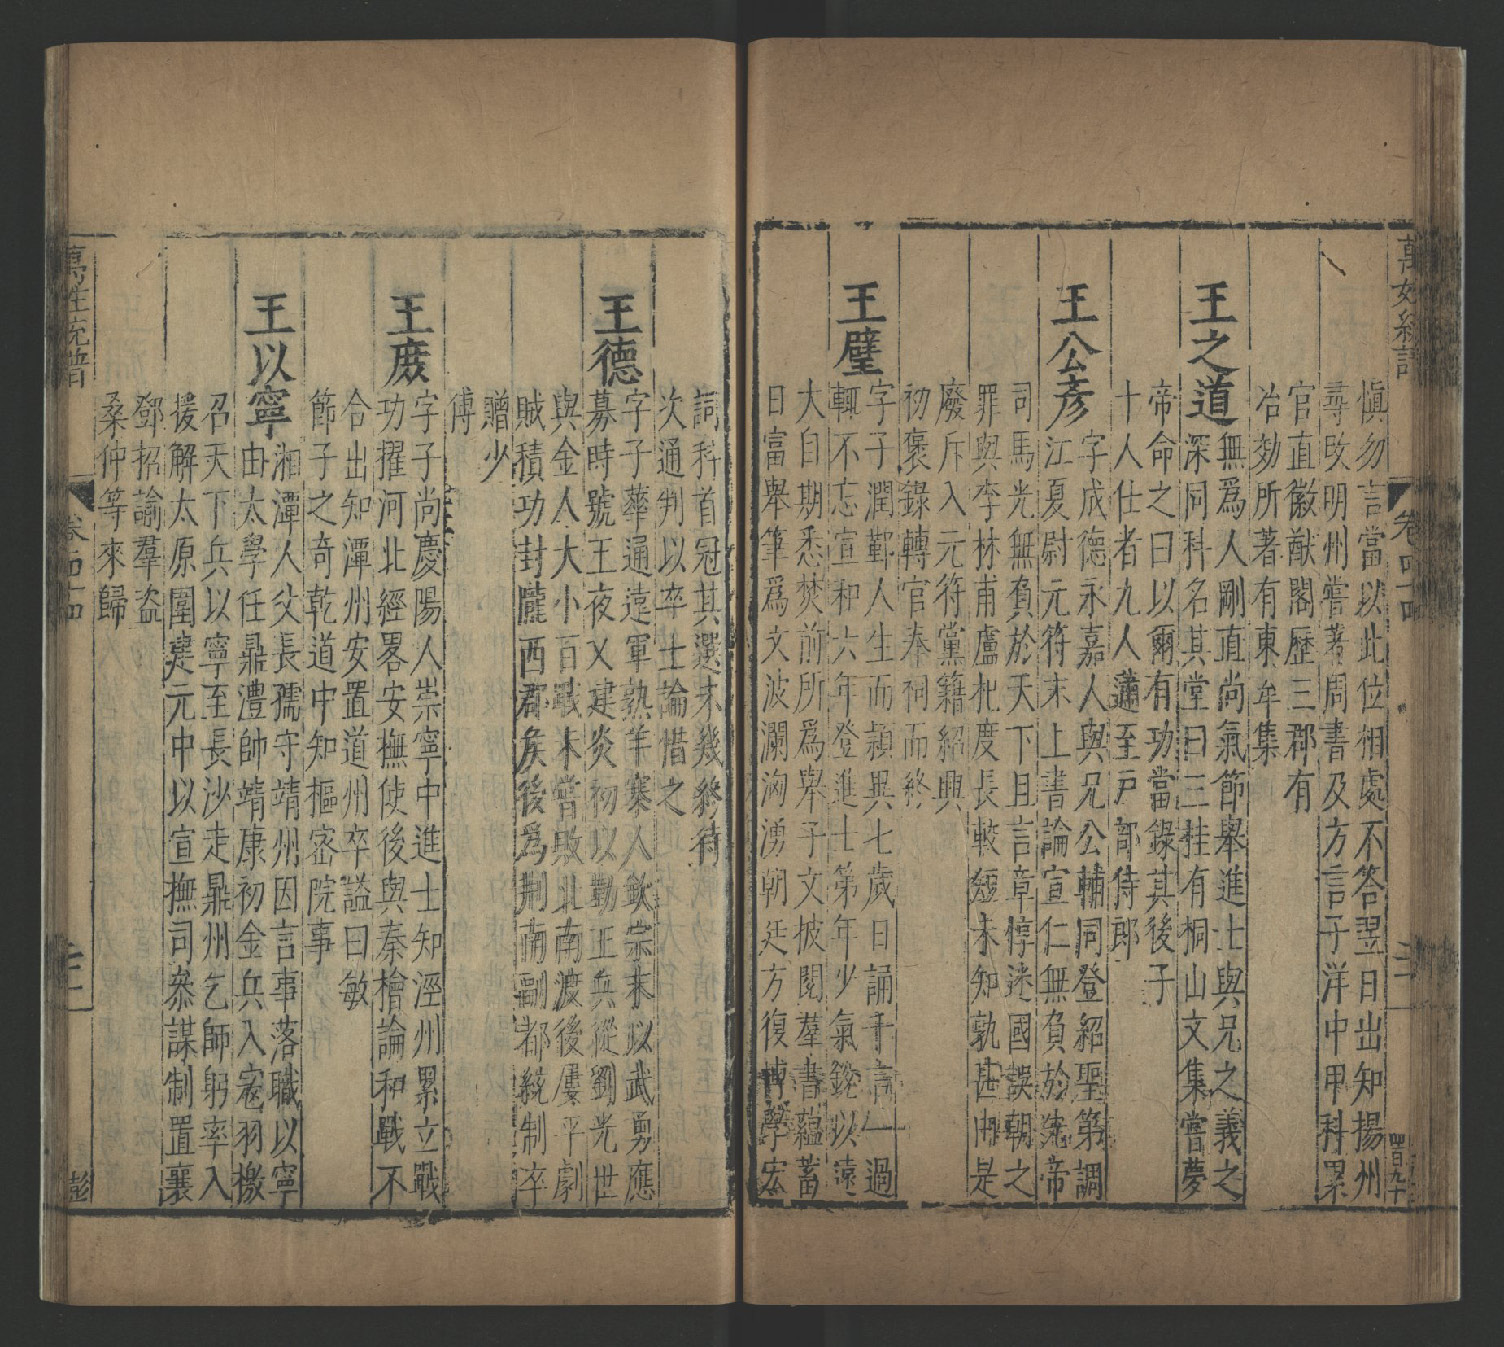 慎勿言當以此位相處不答翌日出知揚州
尋改明州嘗著周書及方言子洋中甲科累
官直徽猷閣歷三郡有
治劾所著有東牟集
王之道
無爲人剛直尚氣節舉進士與兄之義之
深同科名其堂曰三桂有桐山文集嘗夢
帝命之曰以爾有功當錄其後子
十人仕者九人藎至戸部侍郎
王公彦
字成德永嘉人與兄公輔同登紹聖第調
江夏尉元符末上書論宣仁無負於先帝
司馬光無負於天下且言章惇迷國誤朝之
罪與李林甫盧杞度長較短未知孰甚由是
廢斥入元符黨籍紹興
初褒錄轉官奉祠而終
王壁
字子潤鄞人生而頴異七歲日誦千言一過
輒不忘宣和六年登進士第年少氣銳以遠
大自期悉焚前所爲舉子文披閱羣書蘊蓄
日富舉筆爲文波瀾洶湧朝廷方復博學宏
萬姓統譜
卷一百四十四
詞科首冠其選未幾終待
次通判以卒士論惜之
王德
字子華通遠軍熟羊寨人欽宗末以武勇應
募時號王夜叉建炎初以勤王兵從劉光世
與金人大小百戰未嘗敗北南渡後屢平劇
賊積功封隴西郡矦後爲荆南副都統制卒
贈少
傅
王庶
字子尚慶陽人崇寧中進士知涇州累立戰
功擢河北經畧安撫使後與秦檜論和戰不
合出知潭州安置道州卒謚曰敏
節子之奇乾道中知樞宻院事
王以寧
湘潭人父長孺守靖州因言事落職以寧
由太學任鼎澧帥靖康初金兵入寇羽檄
召天下兵以寧至長沙走鼎州乞師躬率入
援解太原圍建元中以宣撫司叅謀制置襄
鄧招諭羣盗
桑仲等來歸
萬姓統譜